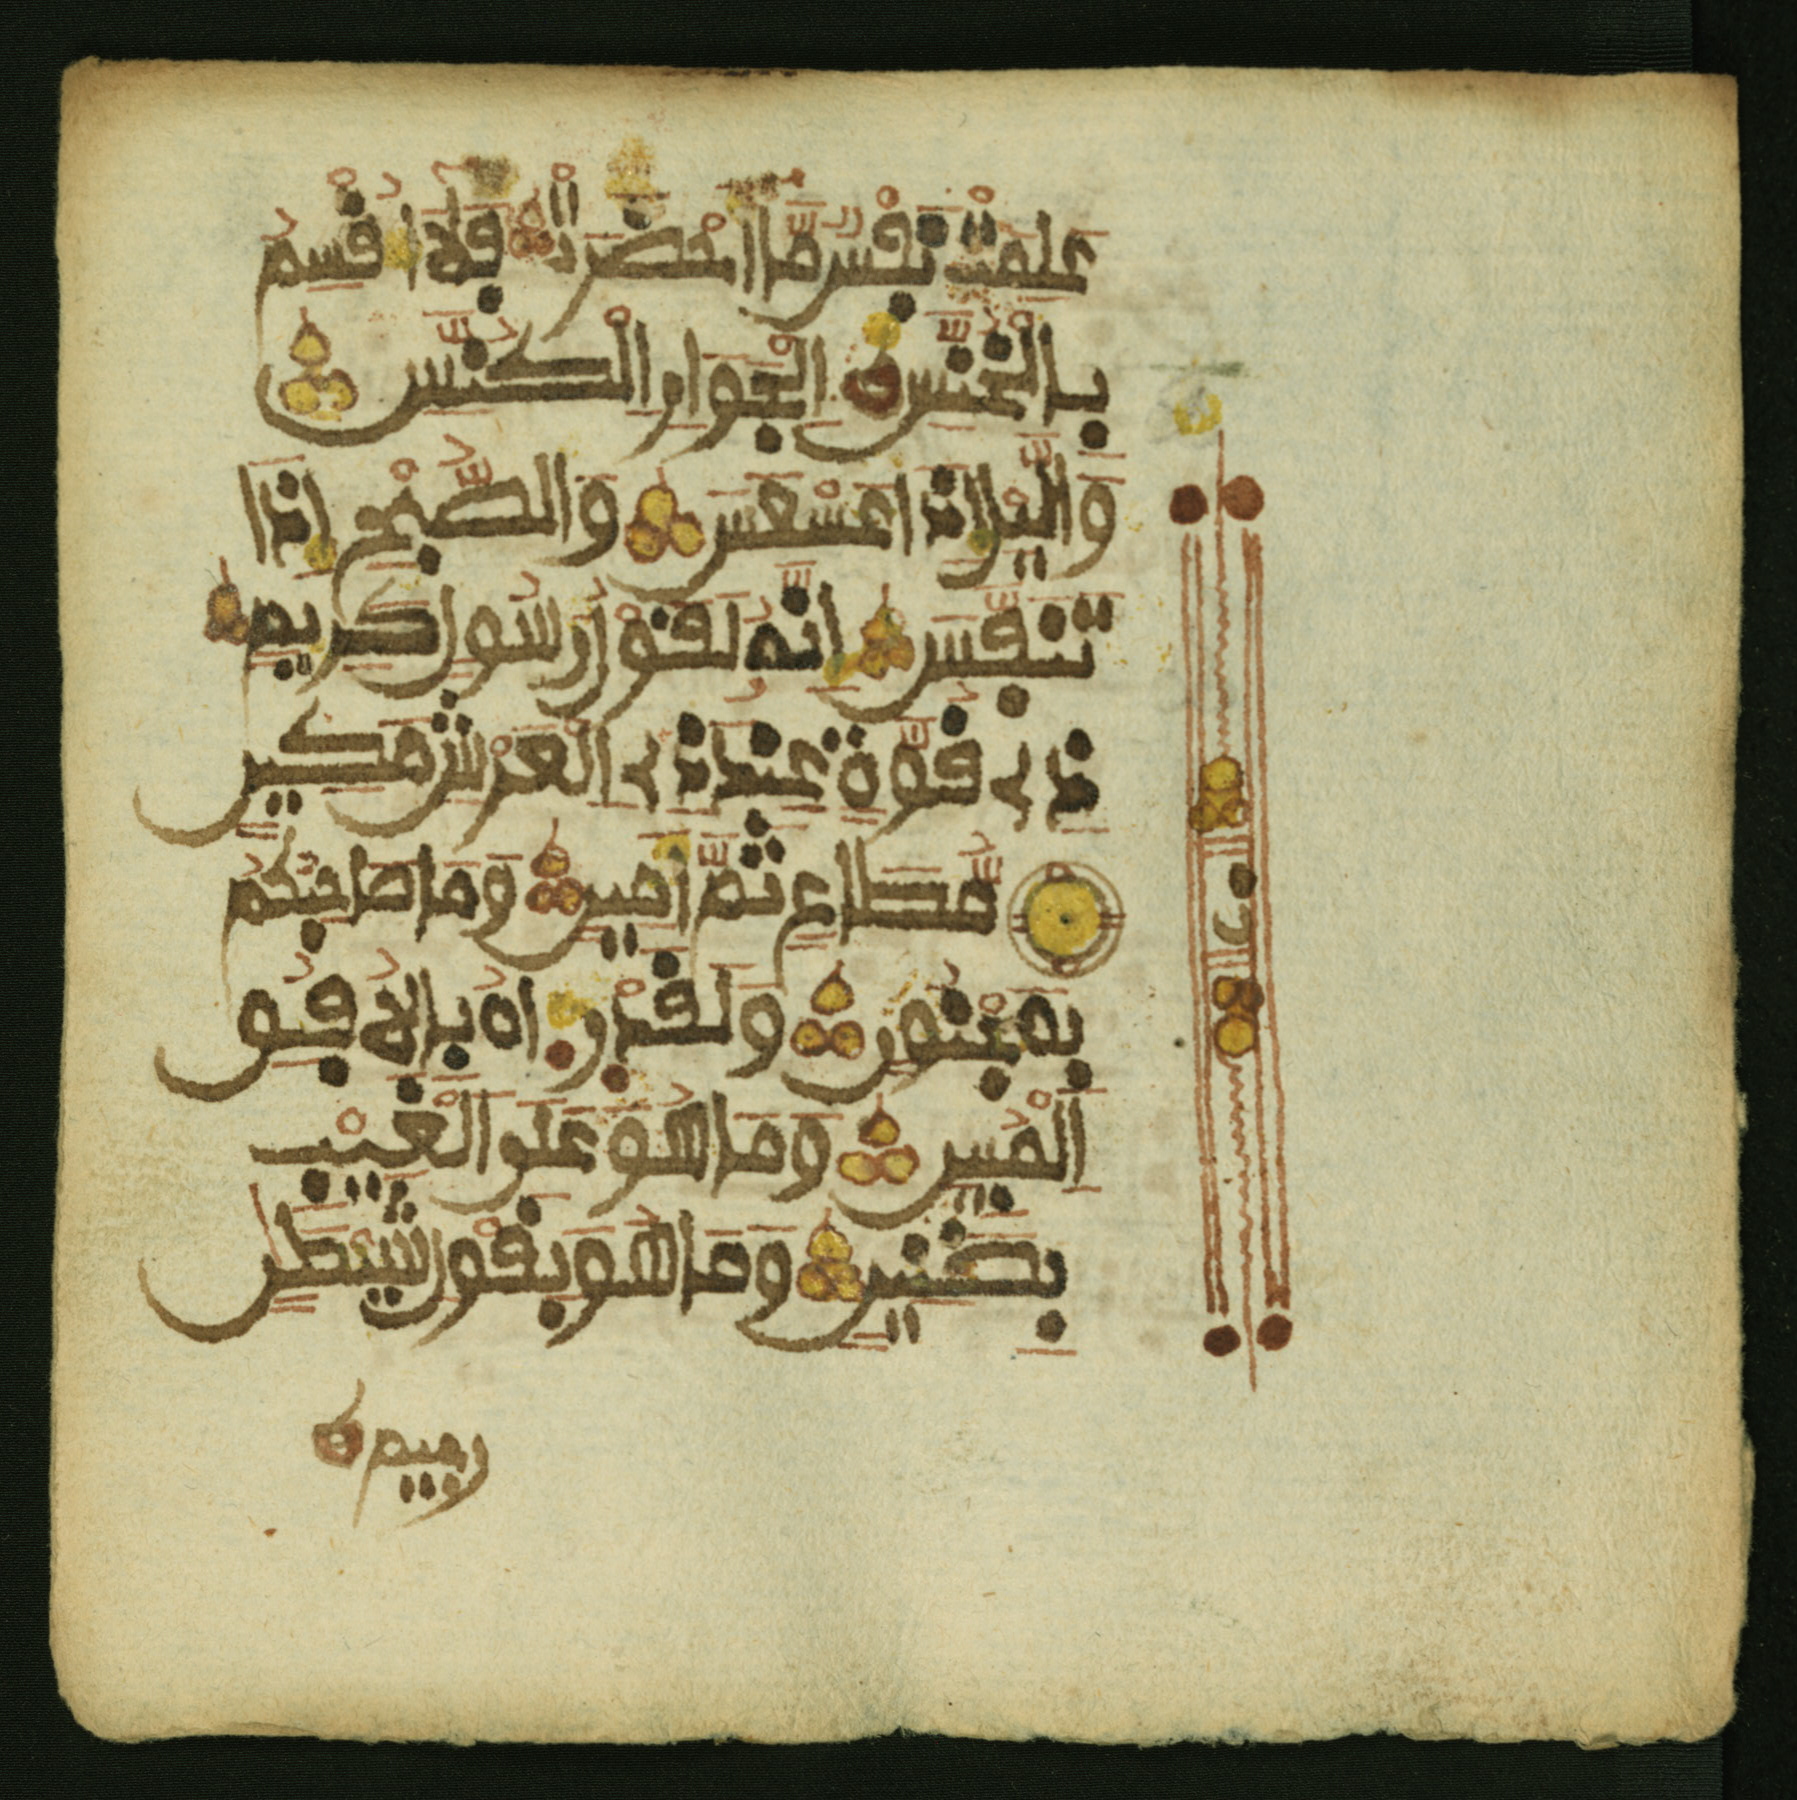 علمت نفس ما احضرت فلا اقسم
بالخنس الجوار الكنس
واليل اذا عسعس والصبح اذا
تنفس انه لقول رسول كريم
ذي قوة عند ذي العرش مكين
مطاع ثم امين وما صحبكم
بمجنون ولقد راه بالافق
المبين وما هو على الغيب
بضنين وما هو بقول شيطن
رجيم